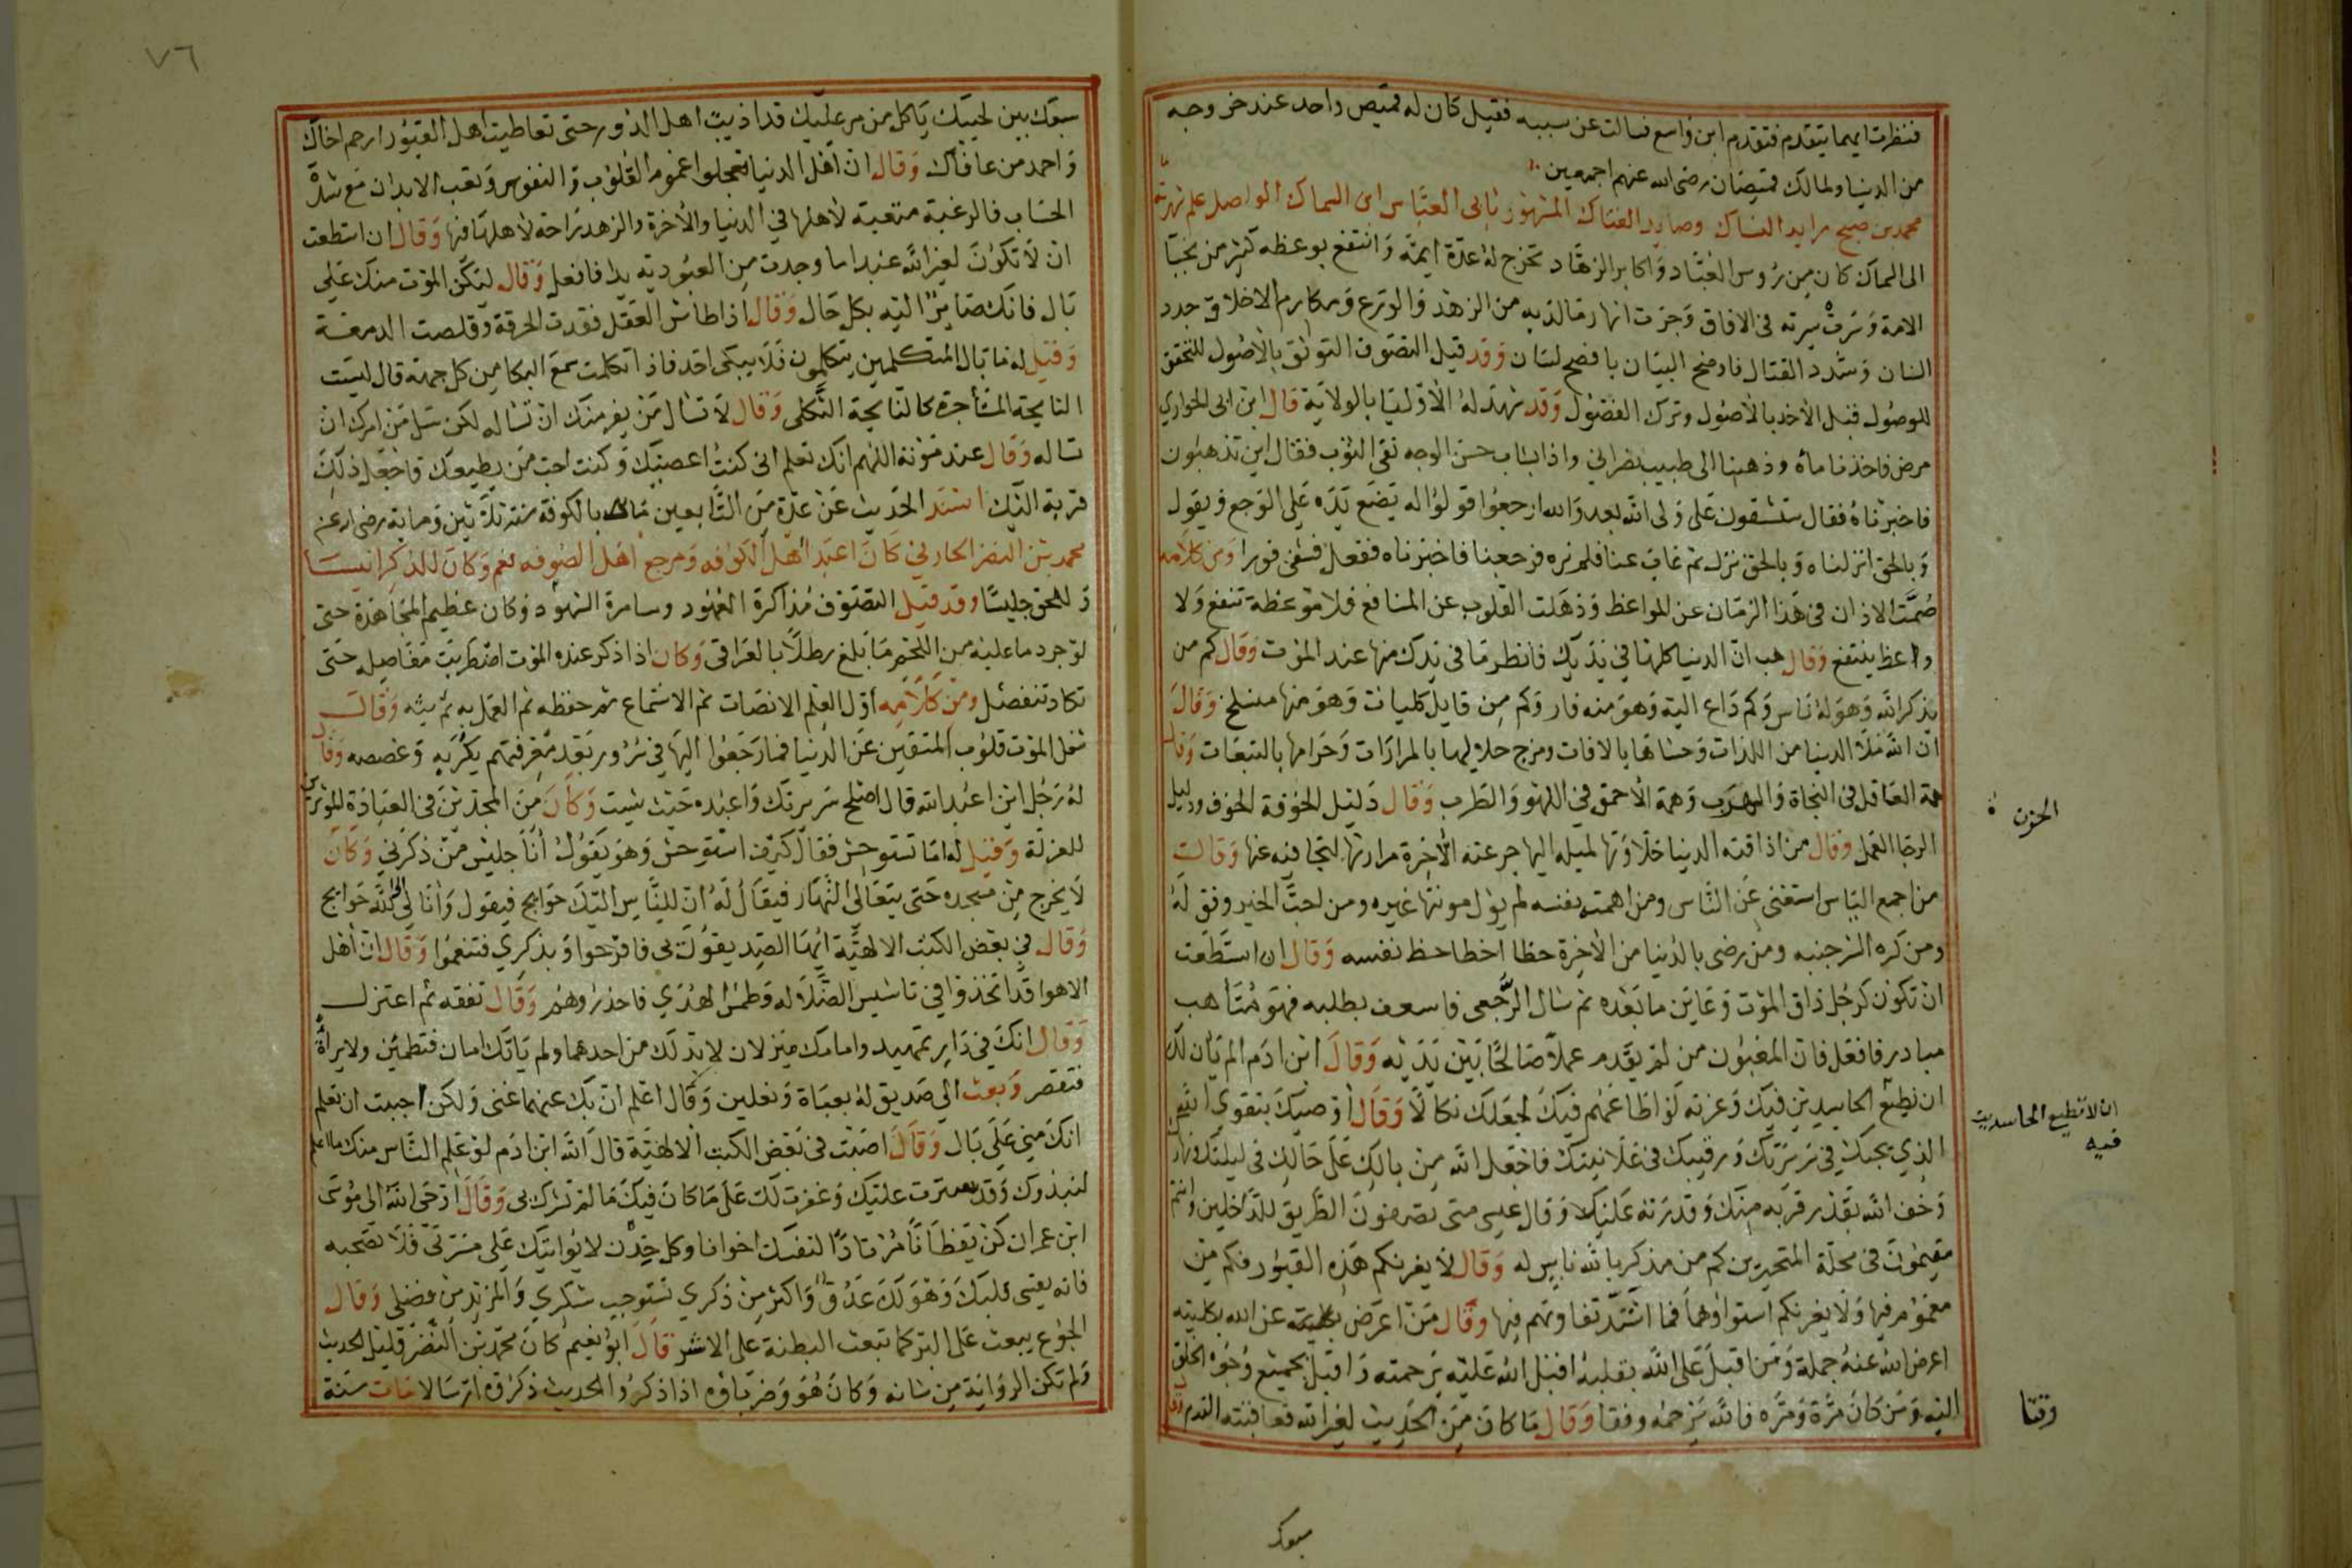 فنظرت ايهما يتقدم فتقدم ابن واسع فسالت عن سببه فقيل كان له قميص واحد عند خروجه
من الدنيا ولمالك قميصان رضى الله عنهم اجمعين
محمد بن صبيح زايد النساك وصايد الفتاك المشهور بابى العباس ابن السماك الواصل علم شهرته
الى السماك كان من رؤس العباد واكابر الزهاد تخرج له عدة ايمة وانتفع بوعظه كثير من نجبا
الامة وسرت سيرته فى الافاق وجرت انهار مقالته من الزهد والورع ومكارم الاخلاق جدد
السنان وشدد القتال فاوضح البيان بافصح لسان وقد قيل التصوف التوثق بالاصول للتحقق
للوصول قبل الاخذ بالاصول وترك الفضول وقد شهد له الاوليا بالولاية قال ابن ابى الحوارى
مرض فاخذنا ماه وذهبنا الى طبيب نصرانى واذا بشاب حسن الوجه نقى الثوب فقال اين تذهبون
فاخبرناه فقال ستشقون على ولى الله بعدو الله ارجعوا قولوا له يضع يده على الوجع ويقول
وبالحق انزلناه وبالحق نزل ثم غاب عنا فلم نره فرجعنا فاخبرناه ففعل فشفى فورا ومن كلامه
صمت الاذان فى هذا الزمان عن المواعظ وذهلت القلوب عن المنافع فلا موعظة تنفع ولا
واعظ ينتفع وقال هب ان الدنيا كلها فى يديك فانظر ما فى يدك منها عند الموت وقال كم من
مذكر الله وهو له ناس وكم داع اليه وهو منه فار وكم من قايل كلمات وهو منها منسلخ وقال
ان الله ملا الدنيا من اللذات وحشاها بالافات ومزج حلالها بالمرارات وحرامها بالتبعات وقال
همة العاقل فى النجاة والهرب وهمة الاحمق فى اللهو والطرب وقال دليل الخوف الحزن ودليل
الرجا العمل وقال من اذاقته الدنيا حلاوتها لميله اليها جرعته الاخرة مرارتها لتجافيه عنها وقال
من اجمع الياس استغنى عن الناس ومن اهمته نفسه لم يول مونتها غيره ومن احب الخير وفق له
ومن كره الشر جنبه ومن رضى بالدنيا من الاخرة حظا اخطا حظ نفسه وقال ان استطعت
ان تكون كرجل ذاق الموت وعاين ما بعده ثم سال الرجعى فاسعف بطلبه فهو متاهب
مبادر فافعل فان المغبون من لم يقدم عملا صالحا بين يديه وقال ابن ادم الم يان لك
ان تطيع الحاسدين فيك وعزته لو اطاعهم فيك لجعلك نكالا وقال اوصيك بتقوى الله
الذى يجيك فى سريرتك ورقيبك فى علانيتك فاجعل الله من بالك على حالك فى ليلتك ونهارك
وخف الله بقدر قربه منك وقدرته عليك وقال عيسى متى تصفون الطريق للداخلين وانتم
مقيمون فى محلة المتحيرين كم من مذكر بالله ناس له وقال لا يغرنكم هذه القبور فكم من
مغموم فيها ولا يغرنكم استواوها فما اشد تفاوتهم فيها وقال من اعرض عن الله بكليته
اعرض الله عنه جملة ومن اقبل على الله بقلبه اقبل الله عليه برحمته واقبل بجميع وجوه الخلق
اليه ومن كان مرة ومرة فالله يرحمه وقتا وقال ما كان من الحديث لغير الله فعاقبته الندم وقال
الحزن
ان لا تطيع الحاسدين
فيه
وقتا
سبعك
٧٦
سبعك بين لحييك ياكل من مر عليك قد اذيت اهل الدور حتى تعاطيت اهل القبور ارحم اخاك
واحمد من عافاك وقال ان اهل الدنيا تعجلوا غموم القلوب والنفوس وتعب الابدان مع شدة
الحساب فالرغبة متعبة لاهلها فى الدنيا والاخرة والزهد راحة لاهلها فيها وقال ان استطعت
ان لا تكون لغير الله عبدا ما وجدت من العبودية بدا فافعل وقال ليكن الموت منك على
بال فانك صاير اليه بكل حال وقال اذا طاش العقل فقدت الحرقة وقلصت الدمعة
وقيل له ما بال المتكلمين يتكلمون فلا يبكى احد فاذا تكلمت سمع البكا من كل جهة قال ليست
النايحة المستأجرة كالنايحة الثكلى وقال لا تسال من يفر منك ان تساله لكن سل من امرك ان
تساله وقال عند موته اللهم انك تعلم انى كنت اعصيك وكنت احب من يطيعك فاجعل ذلك
قربة اليك اسند الحديث عن عدة من التابعين مات بالكوفة سنة ثلاثين وماية رضى الله عنه
محمد بن النضر الحارثي كان اعبد اهل الكوفه ومرجع اهل الصوفه نعم وكان للذكر انيسا
وللحق جليسا وقد قيل التصوف مذاكرة العهود ومسامرة الشهود وكان عظيم المجاهدة حتى
لو جرد ما عليه من اللحم ما بلغ رطلا بالعراقى وكان اذا ذكر عنده الموت اضطربت مفاصله حتى
تكاد تنفصل ومن كلامه اول العلم الانصات ثم الاستماع ثم حفظه ثم العمل به ثم بثه وقال
شغل الموت قلوب المتقين عن الدنيا فما رجعوا اليها فى سرور بعد معرفتهم بكربه وغصصه وقال
له رجل اين اعبد الله قال اصلح سريرتك واعبده حيث شيت وكان من المجدين فى العبادة الموثرين
للعزلة وقيل له اما تستوحش فقال كيف استوحش وهو يقول انا جليس من ذكرني وكان
لا يخرج من مسجده حتى يتعالى النهار فيقال له ان للناس اليك حوايج فيقول وانا لى الى الله حوايج
وقال فى بعض الكتب الالهية ايها الصديقون بى فافرحوا وبذكري فتنعموا وقال ان اهل
الاهوا قد اتخذوا فى تاسيس الضلاله وطمس الهدي فاحذروهم وقال تفقه ثم اعتزل
وقال انك فى دار تمهيد وامامك منزلان لا بد لك من احدهما ولم ياتك امان فتطمئن ولا براة
فتقصر وبعث الى صديق له بعباة ونعلين وقال اعلم ان بك عنهما غنى ولكن احببت ان تعلم
انك منى على بال وقال اصبت فى بعض الكتب الالهية قال الله ابن ادم لو علم الناس منك ما اعلم
لنبذوك وقد سترت عليك وغفرت لك على ما كان فيك ما لم تشرك بى وقال اوحى الله الى موسى
ابن عمران كن يقظانا مرتادا لنفسك اخوانا وكل خدن لا يواتيك على مسرتى فلا تصحبه
فانه يقسى قلبك وهو لك عدو واكثر من ذكري تستوجب شكري والمزيد من فضلى وقال
الجوع يبعث على البر كما تبعث البطنة على الاشر قال ابو نعيم كان محمد بن النضر قليل الحديث
ولم تكن الرواية من شانه وكان هو وضرباؤه اذا ذكروا الحديث ذكروه ارسالا مات سنة